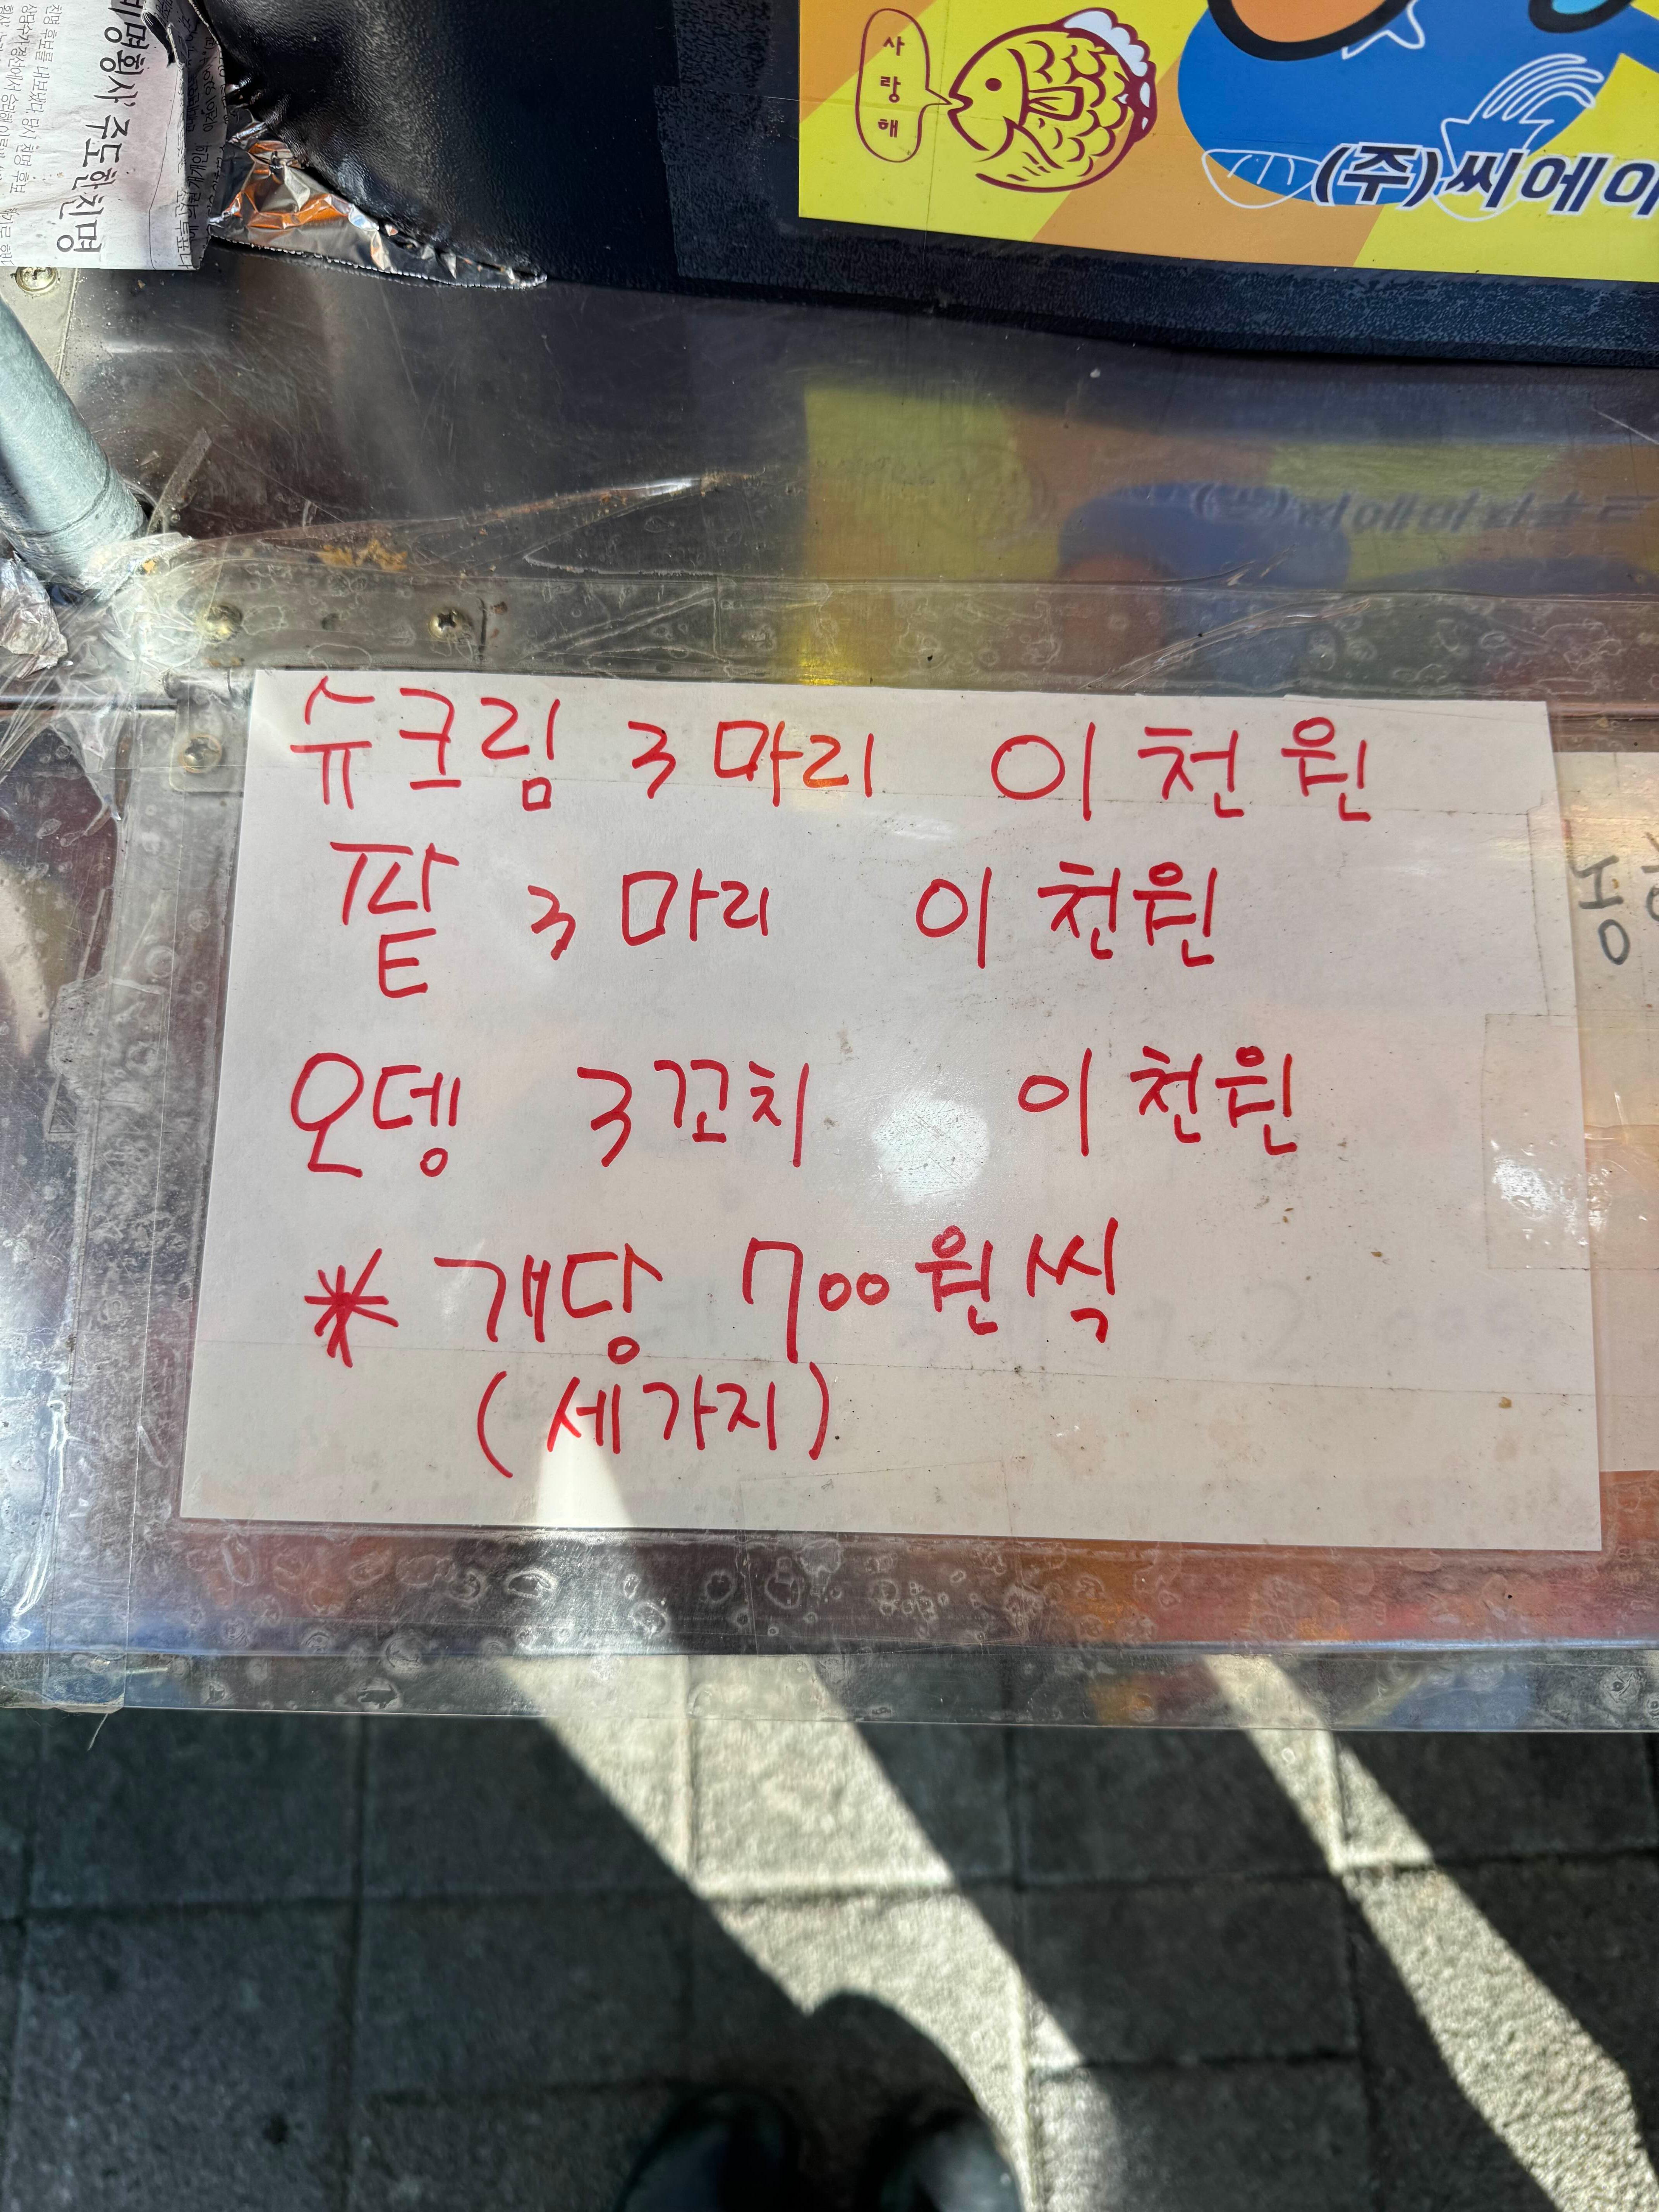 사랑해
(주)씨에이
주도한 친명
슈크림 3마리 이천원
팥 3마리 이천원
오뎅 3꼬치 이천원
* 개당 700원씩
(세가지)